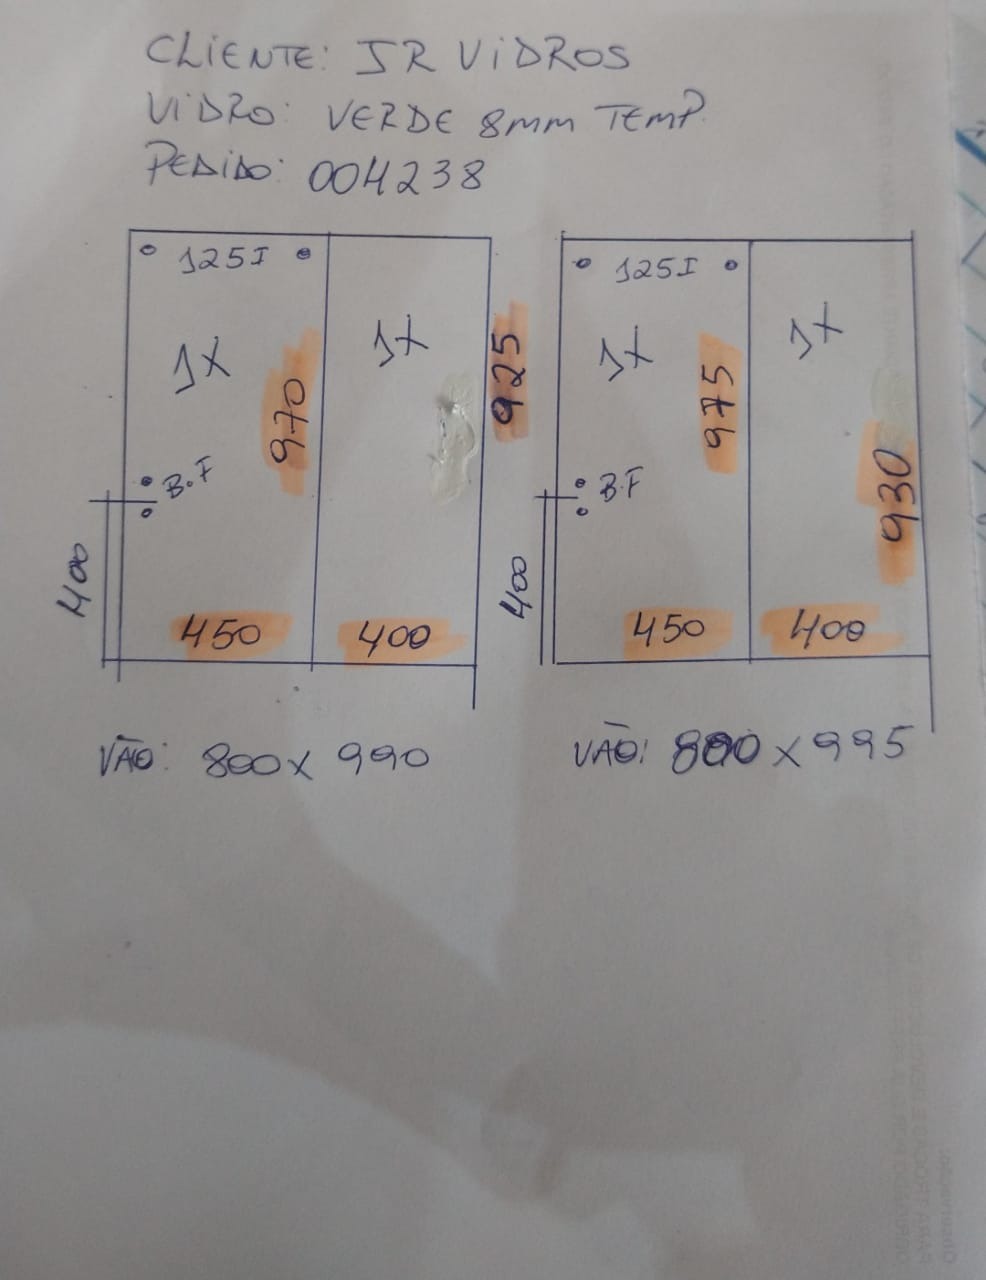 CLIENTE: JR VIDROS
VIDRO: VERDE 8mm TEMP.
PEDIDO: 004238
125I
1X
970
B.F
400
450
1X
925
400
VÃO: 800 X 990
125I
1X
975
B.F
400
450
1X
930
400
VÃO: 800 X 995